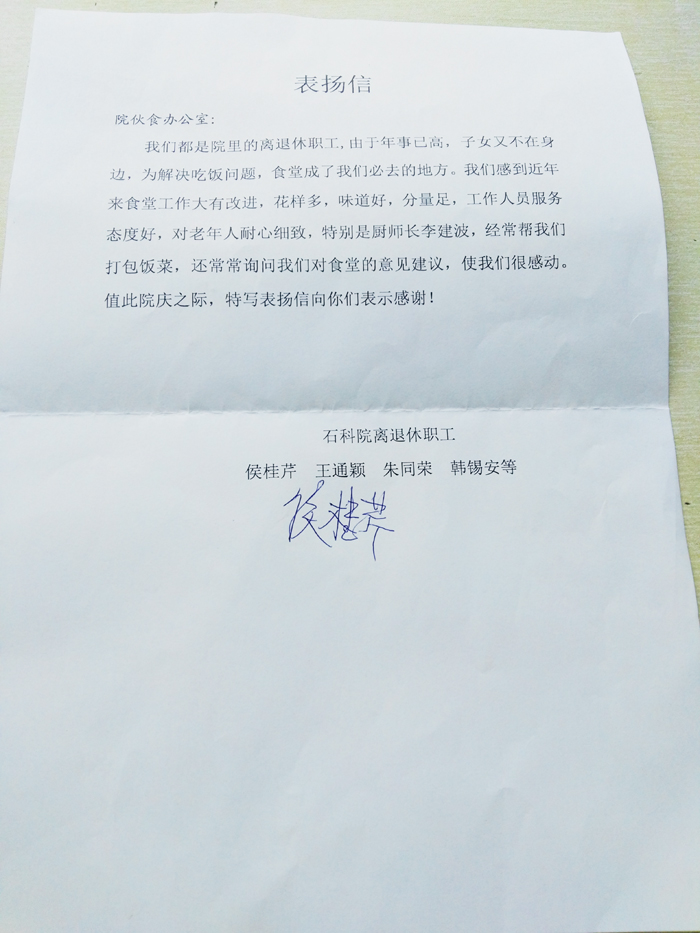 表扬信
院伙食办公室:
我们都是院里的离退休职工,由于年事已高，子女又不在身
边，为解决吃饭问题，食堂成了我们必去的地方。我们感到近年
来食堂工作大有改进，花样多，味道好，分量足，工作人员服务
态度好，对老年人耐心细致，特别是厨师长李建波，经常帮我们
打包饭菜，还常常询问我们对食堂的意见建议，使我们很感动。
值此院庆之际，特写表扬信向你们表示感谢！
石科院离退休职工
侯桂芹 王通颖 朱同荣 韩锡安等
侯桂芹